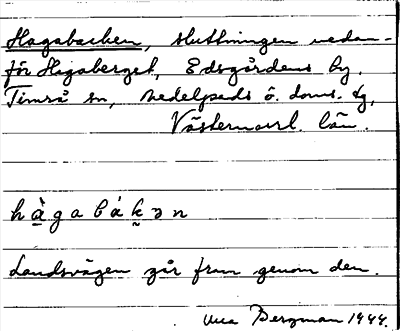 Hagabacken, sluttningen nedan-
för Hagaberget, Edsgårdens by.
Timrå sn, Medelpads ö. doms. dg,
Västernorrl. län.
h à̱ g a b á k̬ ə n
Landsvägen går fram genom den.
Bergman 1944.